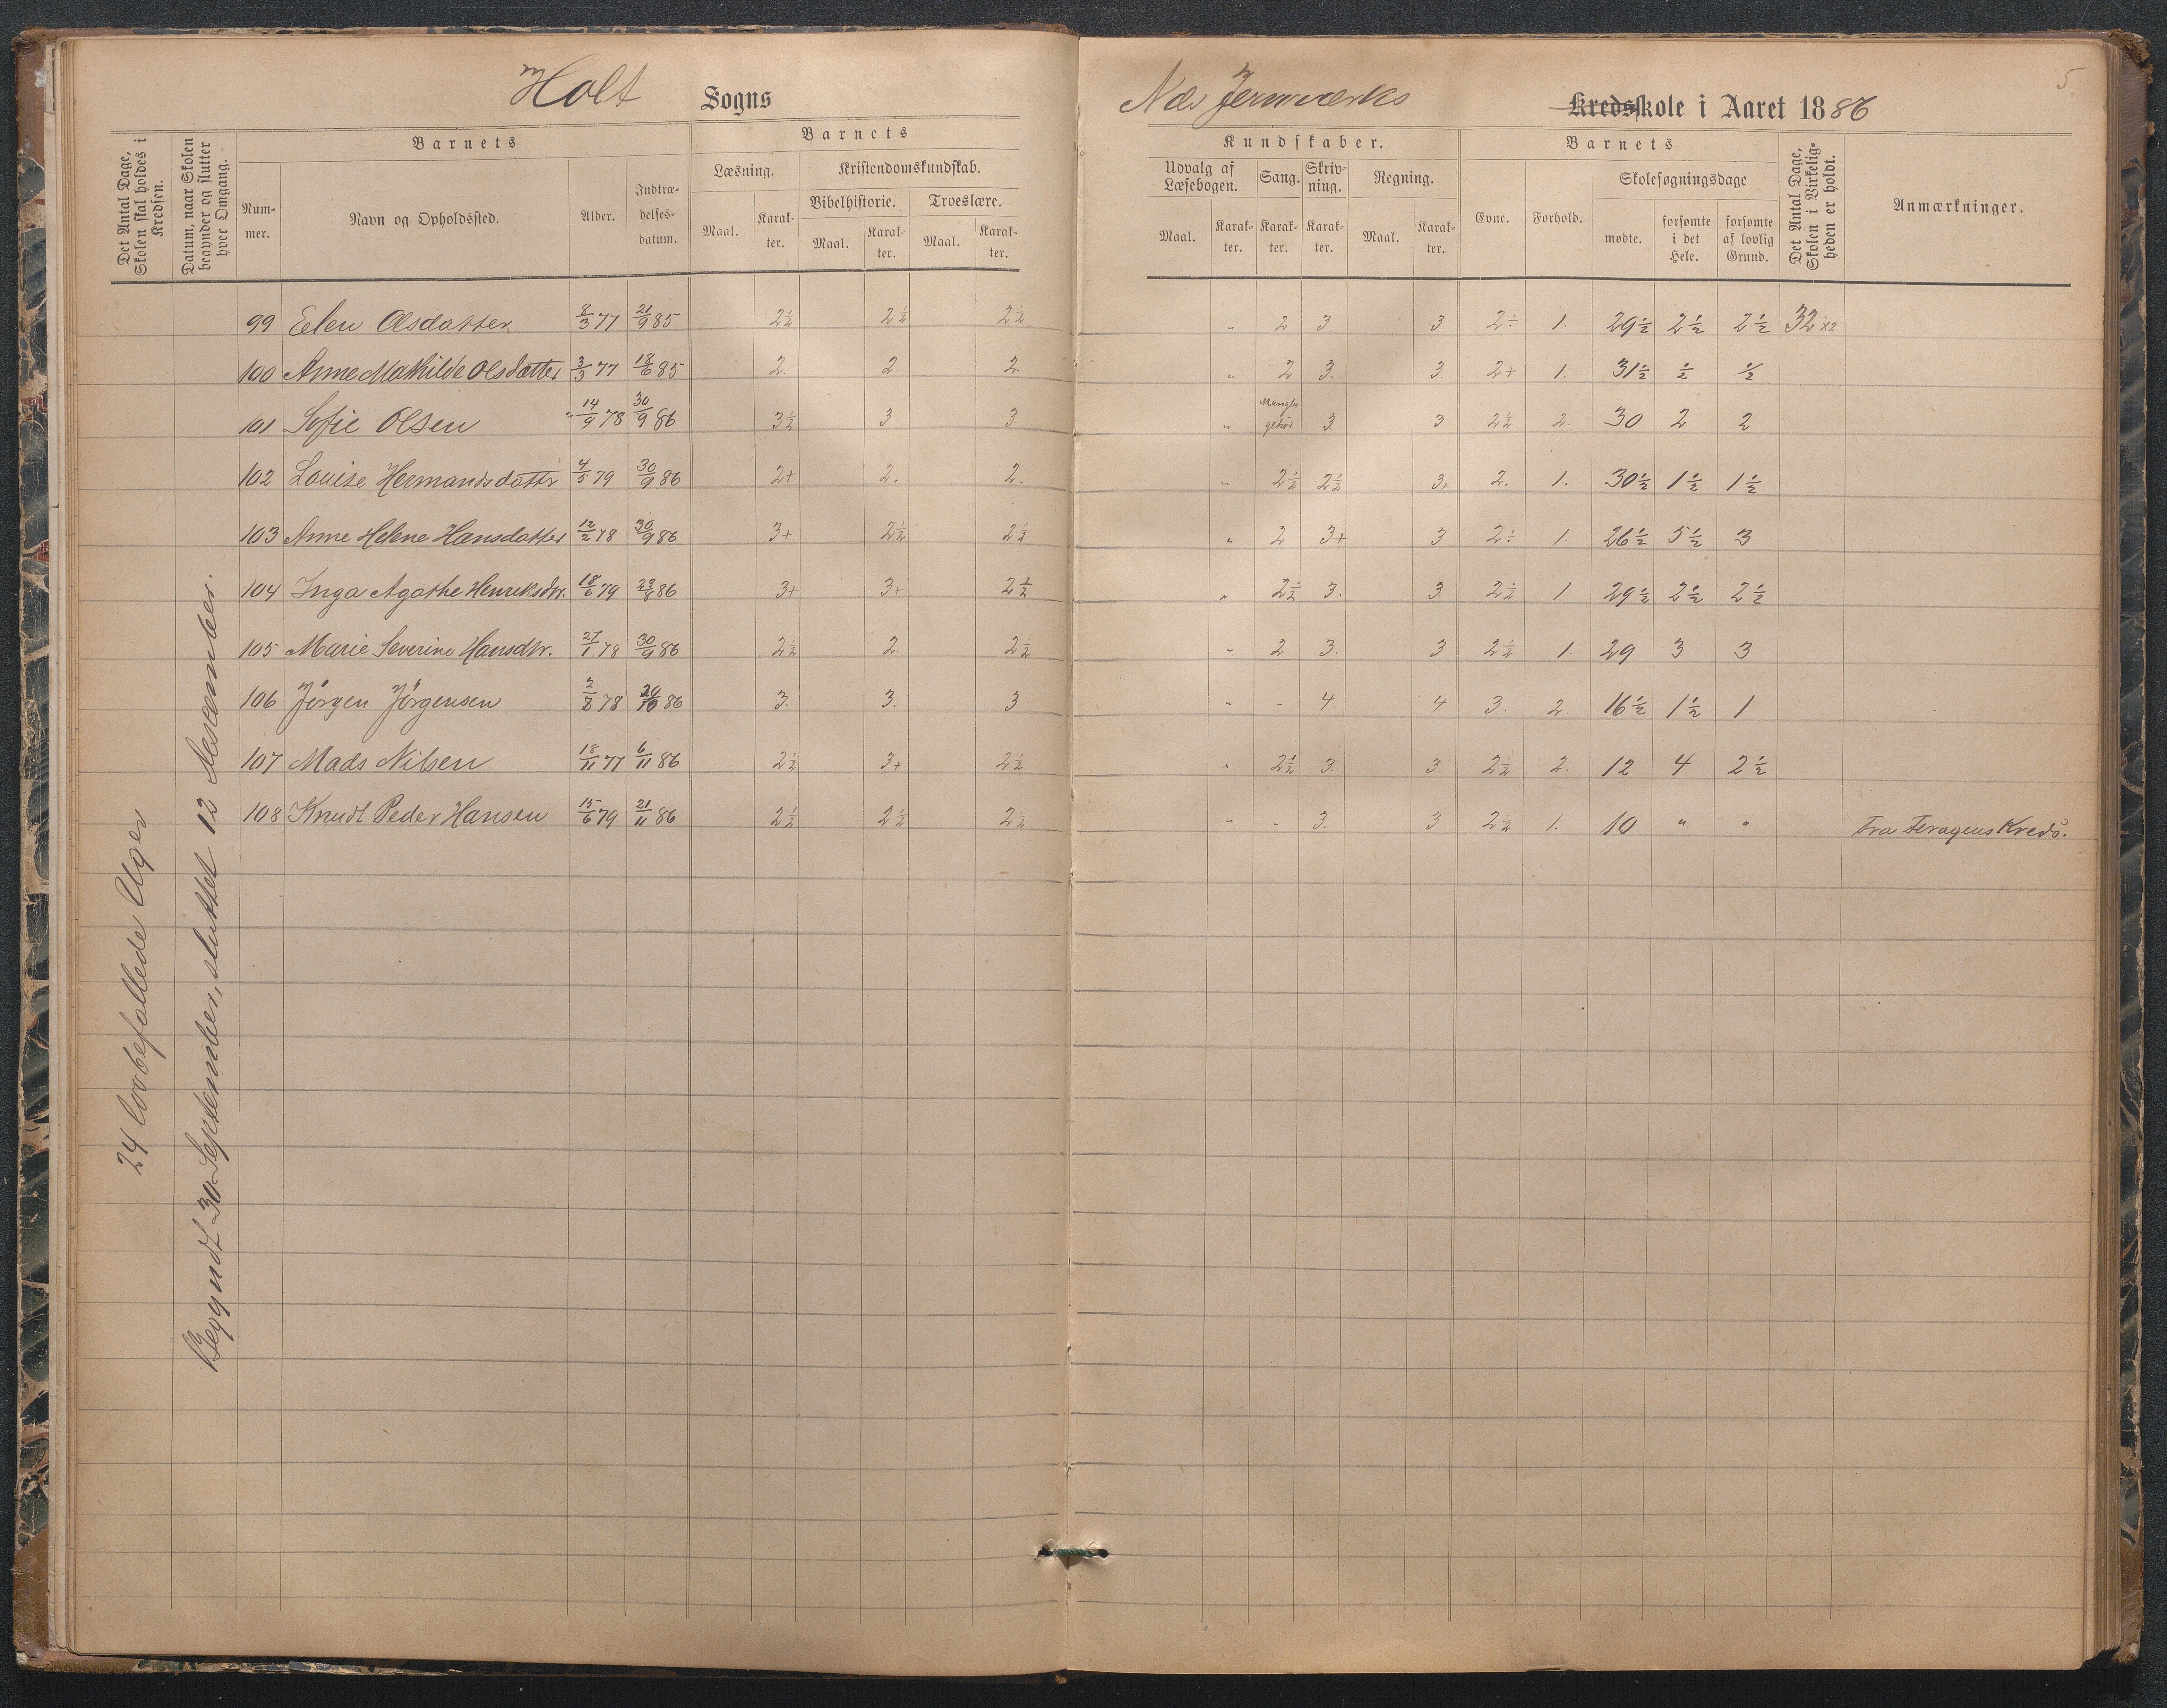 Holt Sogns
Næs Jernværks Kredsskole i Aaret 1886
5.
Det Antal Dage, Skolen skal holdes i Kredsen.
Datum, naar Skolen begynder og slutter hver Omgang.
Barnets
Nummer.
Navn og Opholdssted.
Alder.
Indtrædelsesdatum.
Barnets
Læsning.
Maal. Karakter.
Kristendomskundskab.
Bibelhistorie. Troeslære.
Maal. Karakter. Maal. Karakter.
Kundskaber.
Udvalg af Læsebogen. Sang. Skrivning. Regning.
Maal. Karakter. Karakter. Karakter. Maal. Karakter.
Barnets
Evne. Forhold.
Skolesøgningsdage
mødte. forsømte i det Hele. forsømte af lovlig Grund.
Det Antal Dage, Skolen i Virkeligheden er holdt.
Anmærkninger.
24 lovbefallede Uger
Begyndt 30 September, sluttet 12 December.
99 Elen Olsdatter 8/3 77 21/9 85 2½ 2½ 2½ " 2 3 3 2÷ 1. 29½ 2½ 2½ 32 x2
100 Anne Mathilde Olsdatter 3/3 77 18/6 85 2. 2 2. " 2 3. 3. 2+ 1. 31½ ½ ½
101 Sofie Olsen 14/9 78 30/9 86 3½ 3 3 " Mangler gehør 3. 3 2½ 2. 30 2 2
102 Louise Hermandsdattr 4/5 79 30/9 86 2+ 2. 2. " 2½ 2½ 3+ 2. 1. 30½ 1½ 1½
103 Anne Helene Hansdatter 12/2 78 30/9 86 3+ 2½ 2½ " 2 3+ 3 2÷ 1. 26½ 5½ 3
104 Inga Agathe Henriksdtr. 18/6 79 86 3+ 3+ 2½ " 2½ 3. 3. 2½ 1 29½ 2½ 2½
105 Marie Severine Hansdtr. 27/1 78 30/9 86 2½ 2 2½ " 2 3. 3 2½ 1. 29 3 3
106 Jörgen Jörgensen 78 20/10 86 3. 3. 3 " - 4. 4 3. 2. 16½ 1½ 1
107 Mads Nilsen 18/11 77 6/11 86 2½ 3+ 2½ " 2½ 3. 3. 2½ 2. 12 4 2½
108 Knudt Peder Hansen 15/6 79 21/11 86 2½ 2½ 2½ " " 3. 3 2½ 1. 10 " " Fra Feragens Kreds.